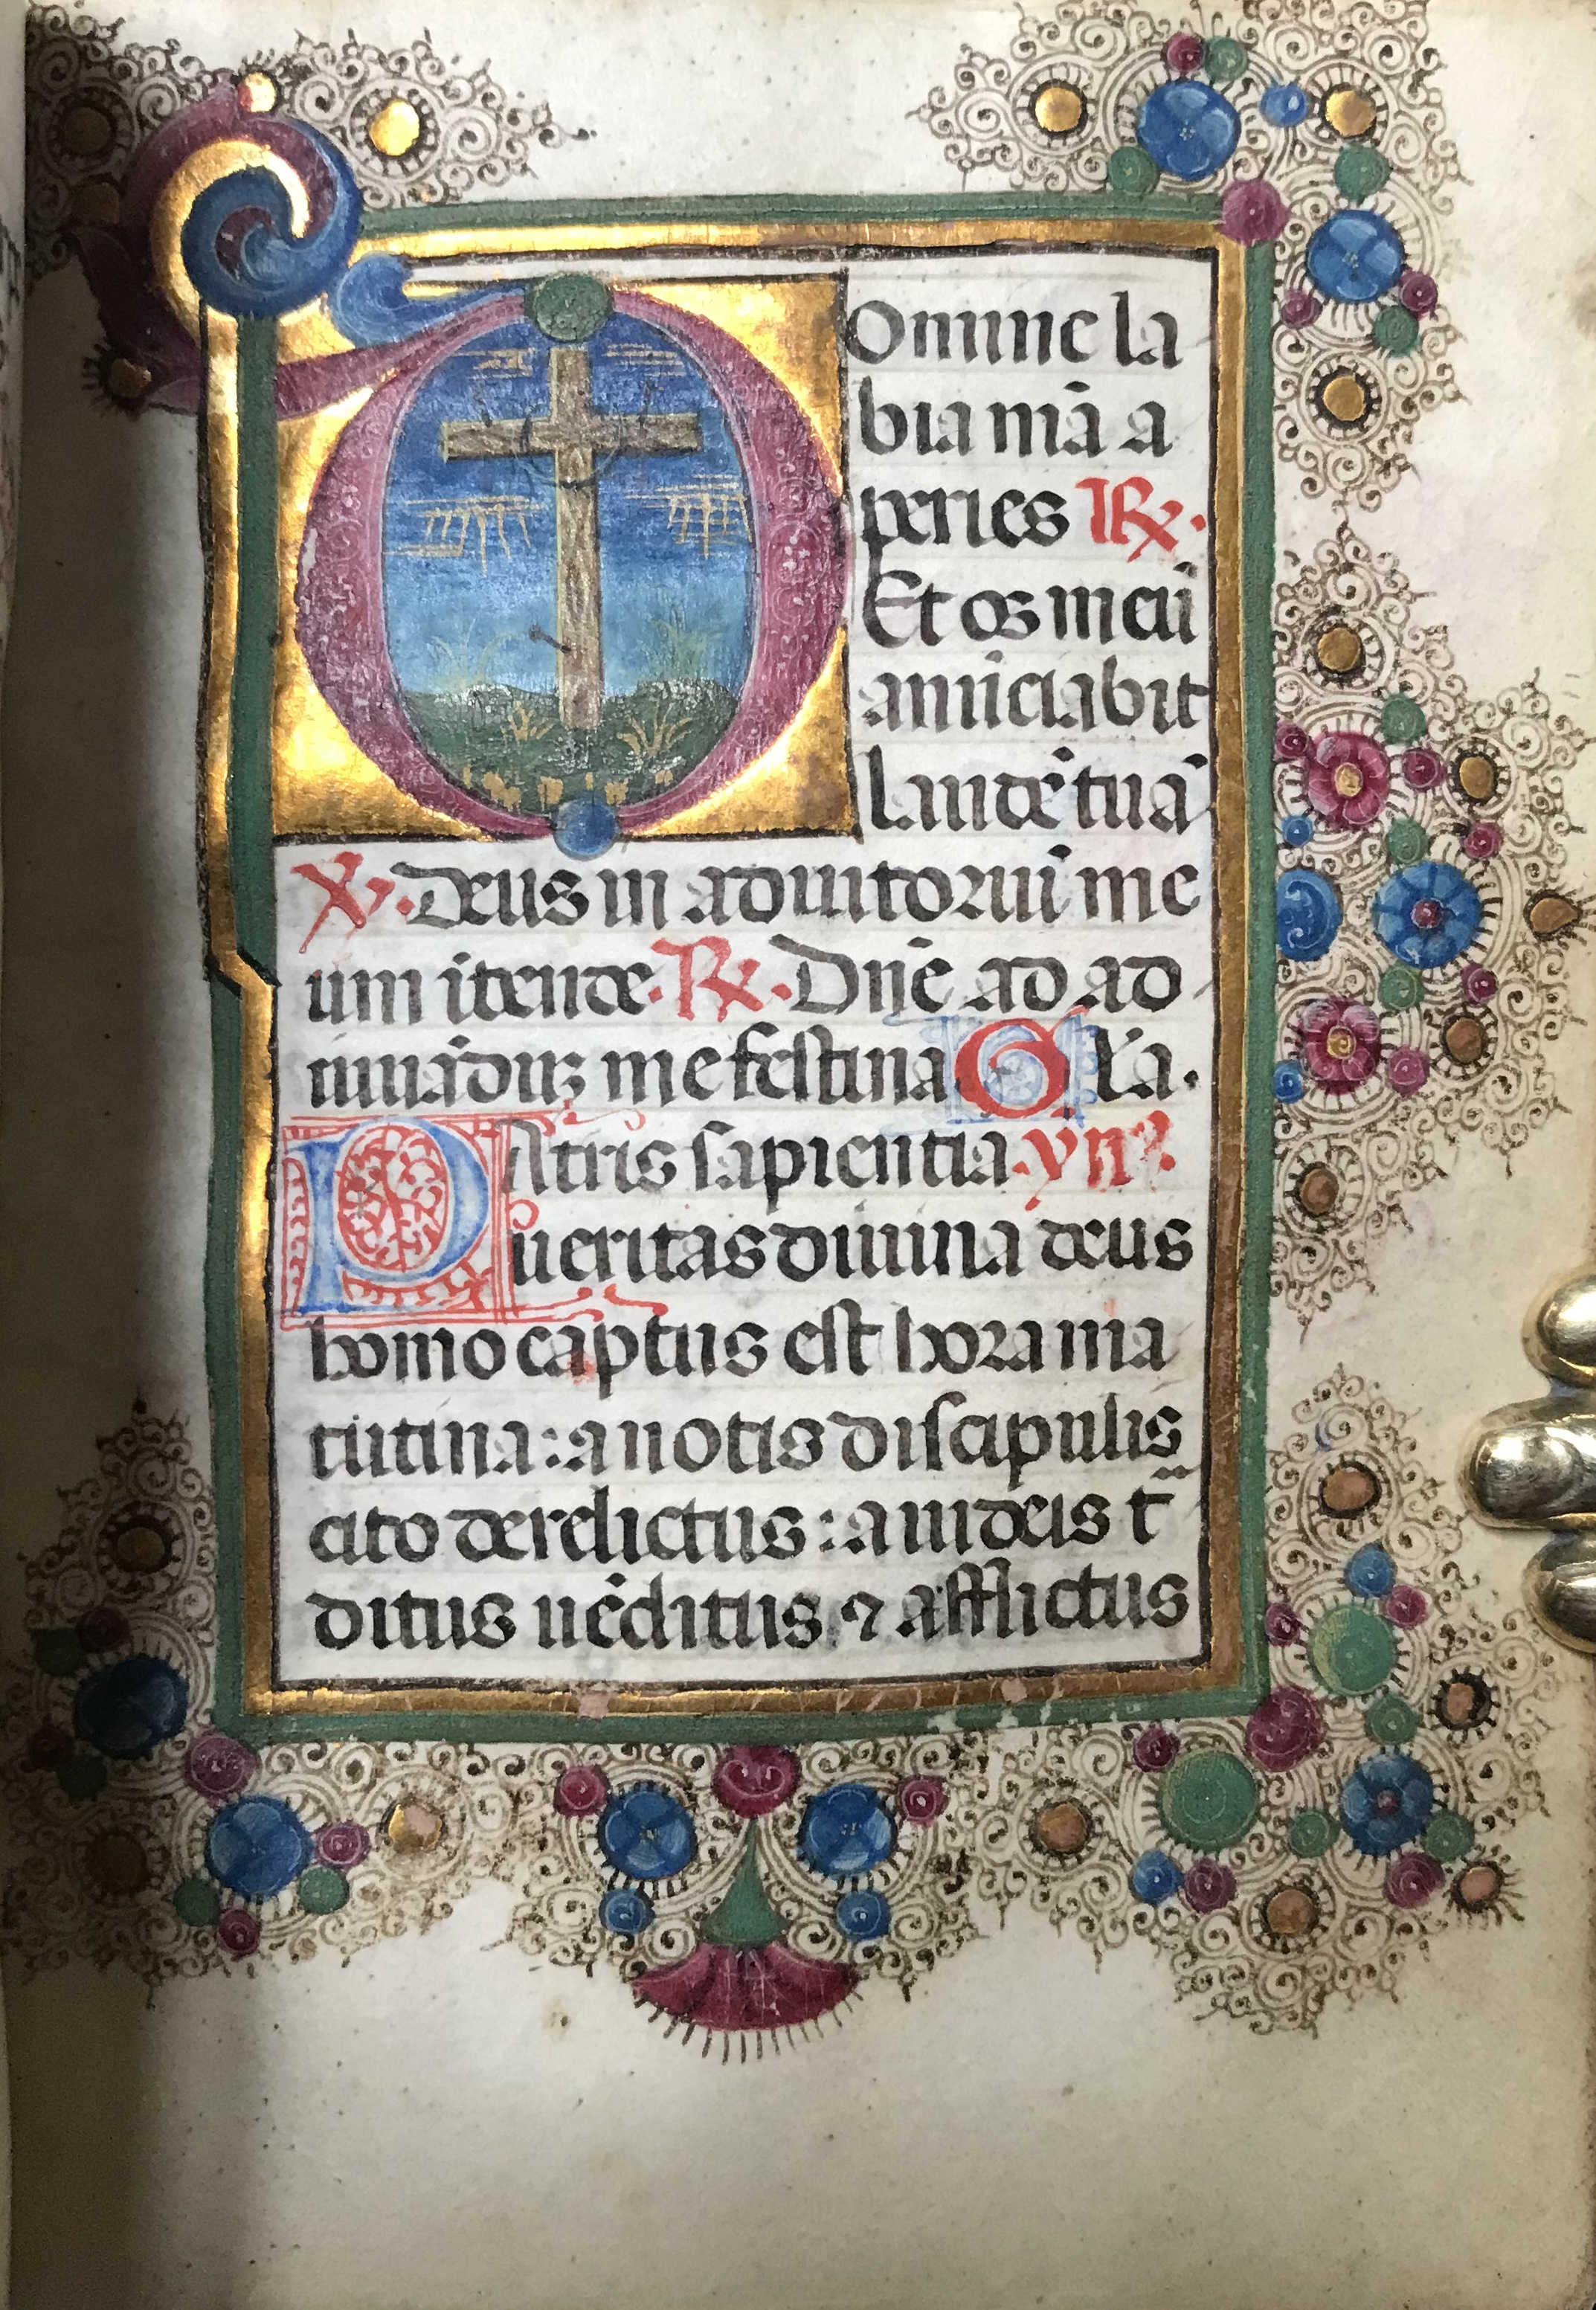 Domine la
bia mā a
peries ℟.
Et os meū
anūciabit
laudē tuā
℣. Deus in adiutoriū me
um ītende. ℟. Dn̄e ad ad
iuuādūꝫ me festina. Gl̄a.
PAtris sapientia. yn̄ꝰ.
ueritas diuina deus
homo captus est hora ma
tutina: a notis discipulis
cito derelictus: a iudeis t̄
ditus uēditus ⁊ afflictus